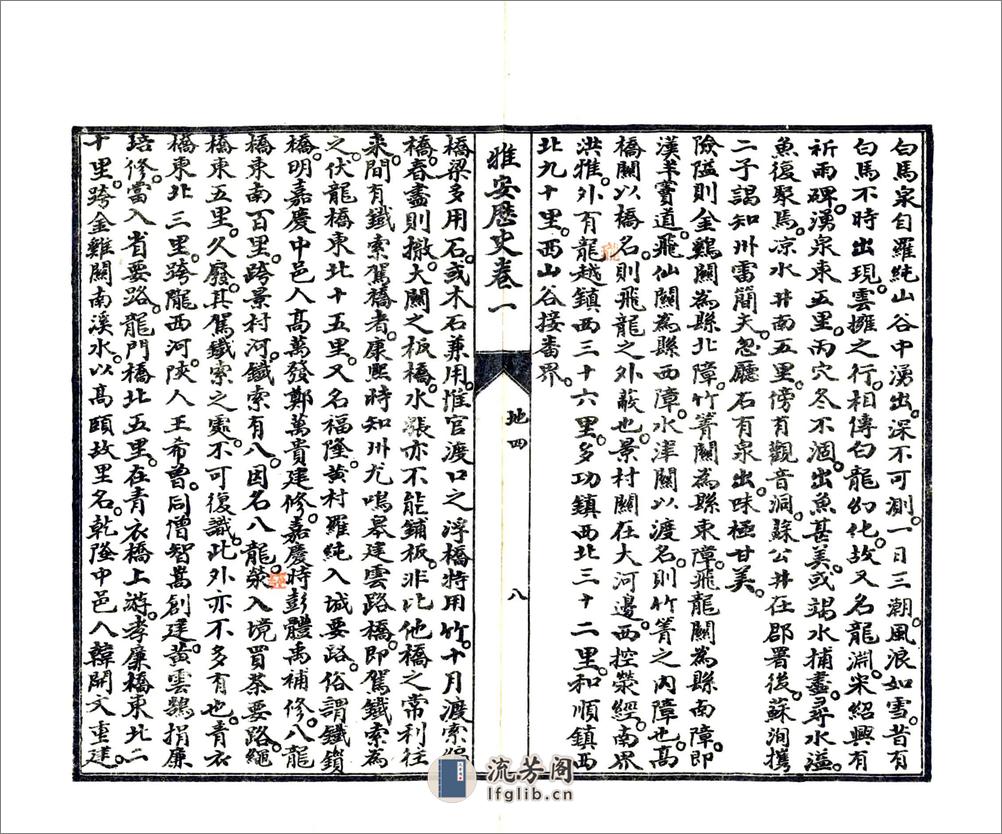 白馬泉自羅純山谷中湧出。深不可測。一日三潮。風浪如雪。昔有
白馬不時出現。雲擁之行。相傳白龍幻化。故又名龍淵。宋紹興有
祈雨碑。湧泉東五里。丙穴冬不涸。出魚甚美。或竭水捕盡。尋水溢。
魚復聚焉。凉水井南五里。傍有觀音洞。蘇公井在郡署後。蘇洵攜
二子謁知州雷簡夫。忽廳石有泉出。味極甘美。
險隘則金鷄關為縣北障。竹箐關為縣東障。飛龍關為縣南障。即
漢羊竇道。飛仙關為縣西障。水津關以渡名。則竹箐之內障也。高
橋關以橋名。則飛龍之外蔽也。景村關在大河邊。西控滎經。南界
洪雅。外有龍越鎮西三十六里。多功鎮西北三十二里。和順鎮西
北九十里。西山谷接番界。
雅安歷史卷一
地四
八
橋梁多用石。或木石兼用。惟官渡口之浮橋特用竹。十月渡索
橋。春盡則撤。大關之板橋。水漲亦不能鋪板。非比他橋之常利往
來。間有鐵索駕橋者。康熙時知州尤鳴皋建雲路橋。即駕鐵索為
之。伏龍橋東北十五里。又名福隆。黃村羅純入城要路。俗謂鐵鎖
橋。明嘉慶中邑人高萬發鄭萬貴建修。嘉慶時彭體禹補修。八龍
橋東南百里。跨景村河。鐵索有八。因名八龍。滎入境買茶要路。繩
橋東五里。久廢。其駕鐵索之處。不可復識。此外亦不多有也。青衣
橋東北三里。跨隴西河。陝人王希曾。同僧智嵩創建。黃雲鵠捐廉
培修。當入省要路。龍門橋北五里。在青衣橋上游。孝廉橋東北二
十里。跨金雞關南溪水。以高頤故里名。乾隆中邑人韓開文重建。
流芳阁
lfglib.cn